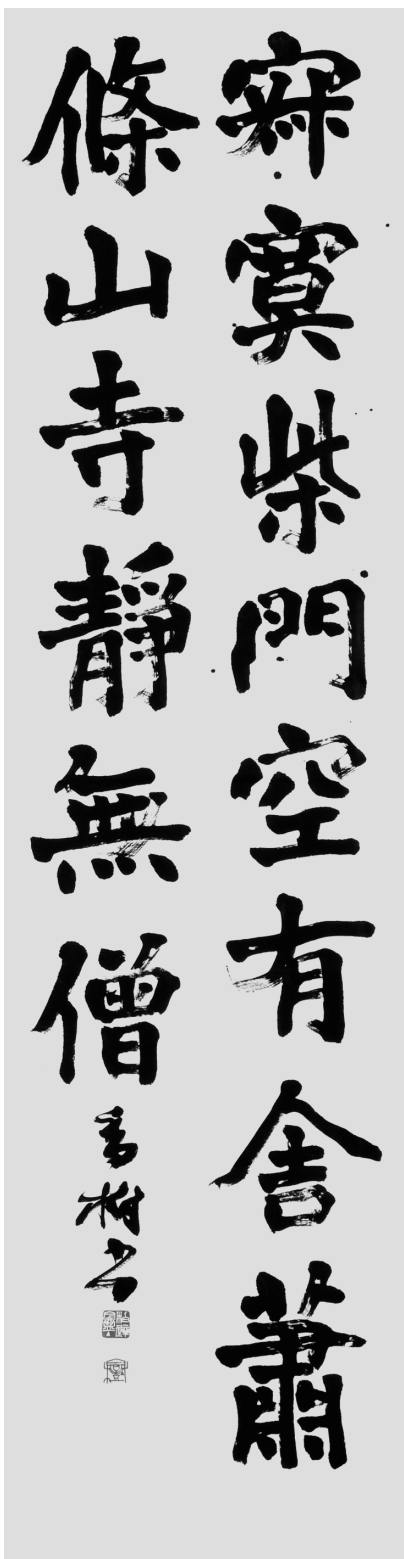 寂寞柴門空有舍蕭
條山寺靜無僧
香樹書